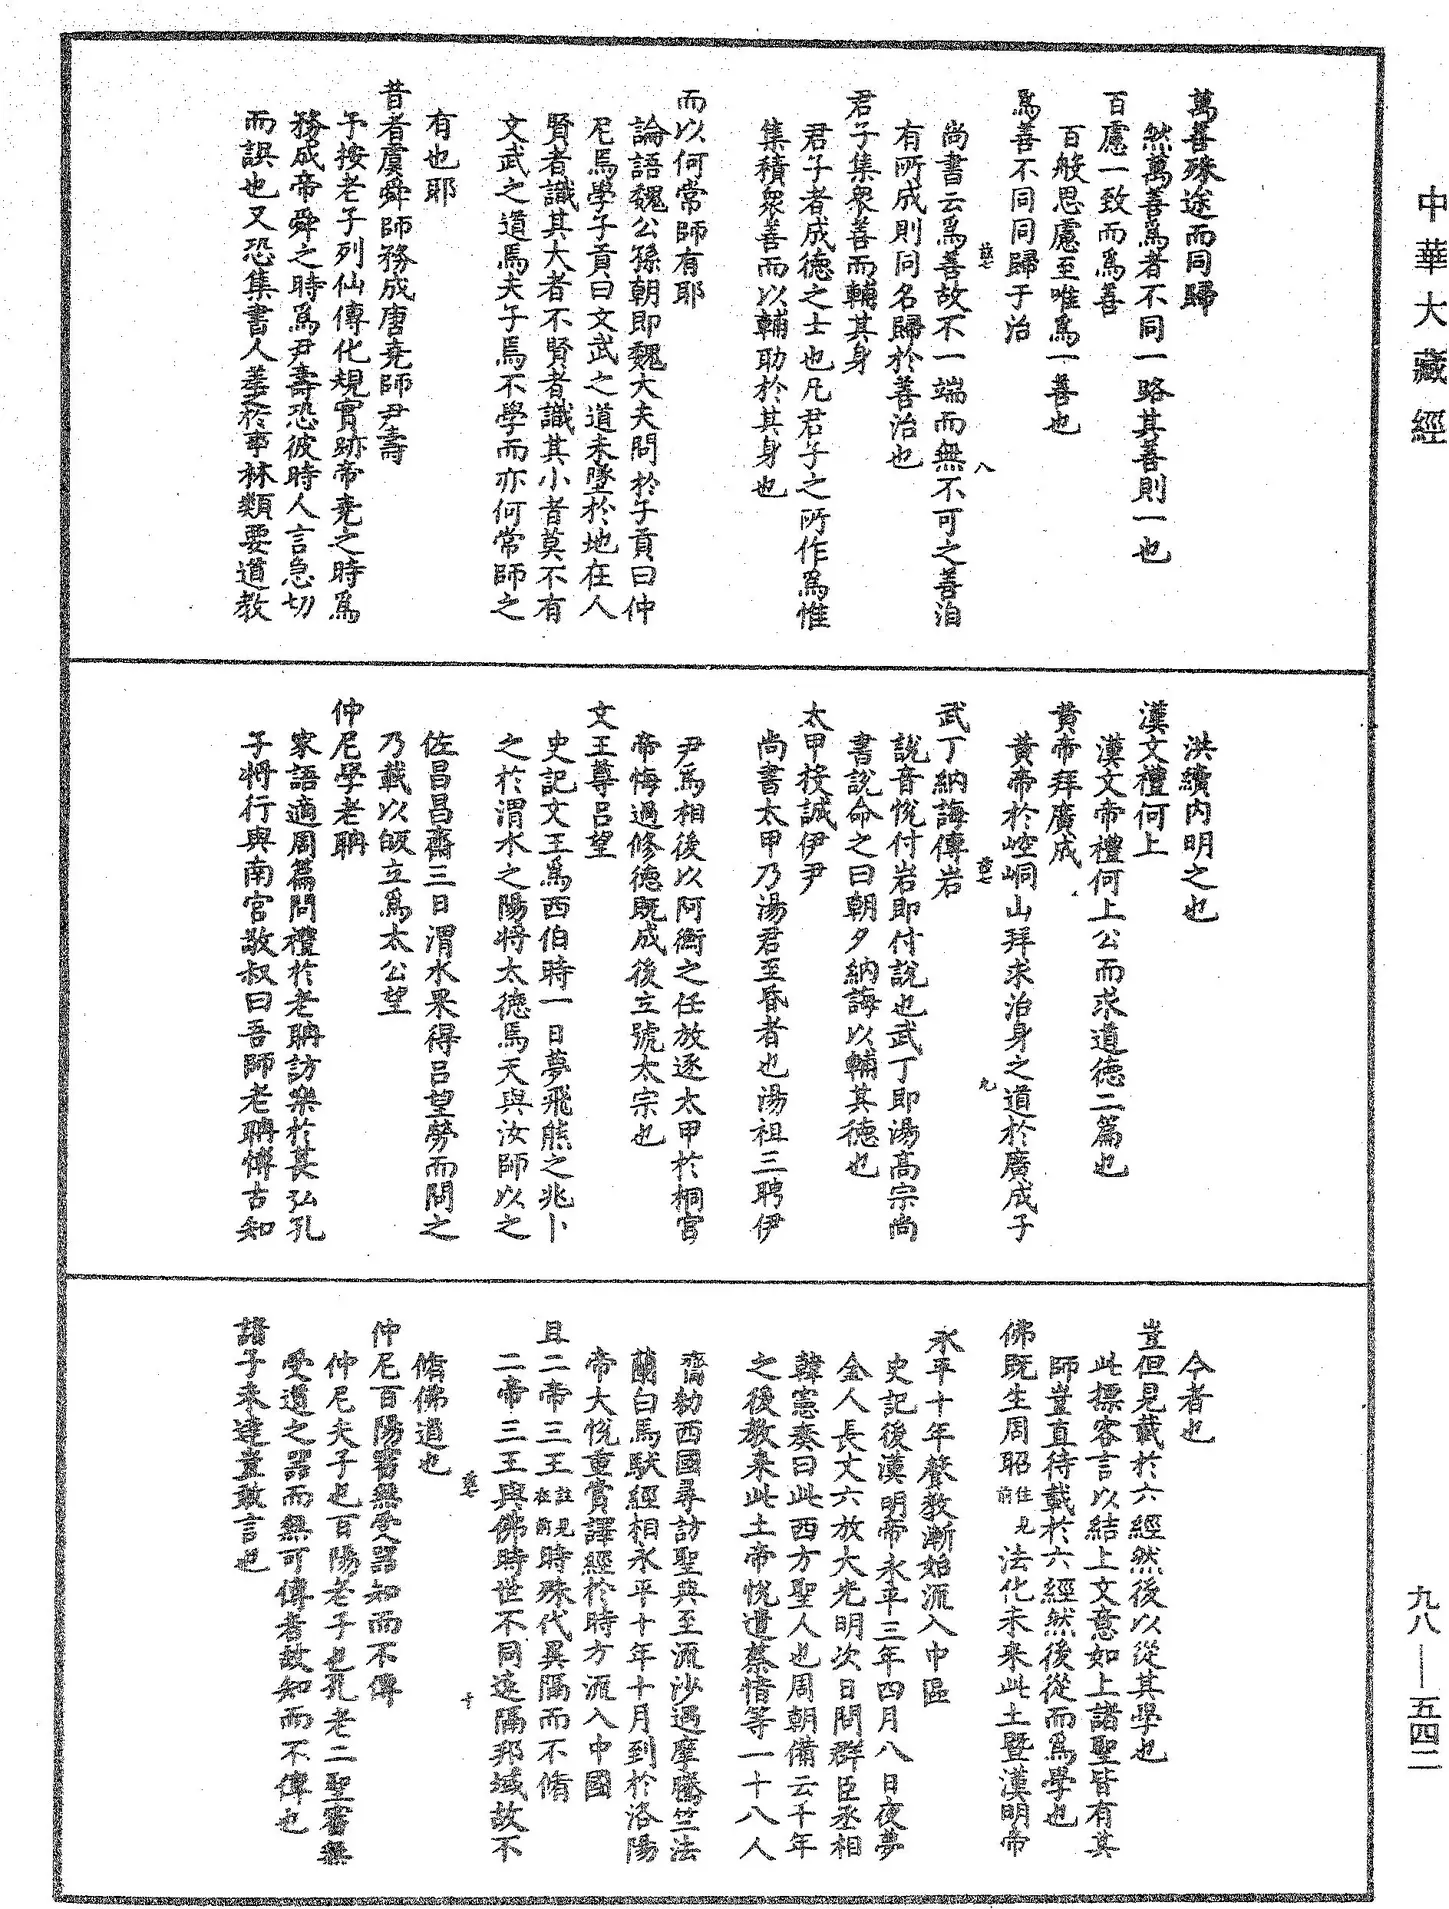 中華大藏經
萬善殊途而同歸
然萬善爲者不同一路其善則一也
百慮一致而爲善
百般思慮至唯爲一善也
爲善不同同歸于治
八
尚書云爲善故不一端而無不可之善洎
有所成則同名歸於善治也
君子集衆善而輔其身
君子者成德之士也凡君子之所作爲惟
集積衆善而以輔助於其身也
而以何常師有耶
論語魏公孫朝即魏大夫問於子貢曰仲
尼焉學子貢曰文武之道未墜於地在人
賢者識其大者不賢者識其小者莫不有
文武之道焉夫子焉不學而亦何常師之
有也耶
昔者虞舜師務成唐堯師尹壽
予按老子列仙傳化規實跡帝堯之時爲
務成帝舜之時爲尹壽恐彼時人言急切
而誤也又恐集書人差於事林類要道教
洪續内明之也
漢文禮何上
漢文帝禮何上公而求道德二篇也
黄帝拜廣成
黄帝於崆峒山拜求治身之道於廣成子
九
武丁納誨傅岩
說音悅付岩即付說也武丁即湯高宗尚
書說命之曰朝夕納誨以輔其德也
太甲投誠伊尹
尚書太甲乃湯君至昏者也湯祖三聘伊
尹爲相後以阿衡之任放逐太甲於桐宫
帝悔過修德既成後立號太宗也
文王尊吕望
史記文王爲西伯時一日夢飛熊之兆卜
之於渭水之陽將太德焉天與汝師以之
佐昌昌齋三日渭水果得吕望勞而問之
乃載以皈立爲太公望
仲尼學老聃
家語適周篇問禮於老聃訪樂於萇弘孔
子將行與南宫敬叔曰吾師老聃博古知
今者也
豈但見載於六經然後以從其學也
此摽客言以結上文意如上諸聖皆有其
師豈直待載於六經然後從而爲學也
佛既生周昭住見前法化未來此土暨漢明帝
永平十年聲教漸始流入中區
史記後漢明帝永平三年四月八日夜夢
金人長丈六放大光明次日問群臣丞相
韓憲奏曰此西方聖人也周朝備云千年
之後教来此土帝悅遣蔡愔等一十八人
齎勑西國尋訪聖典至流沙遇摩騰竺法
蘭白馬馱經相永平十年十月到於洛陽
帝大悅重賞譯經於時方流入中國
且二帝三王註見在前時殊代異隔而不脩
二帝三王與佛時世不同遠隔邦域故不
十
脩佛道也
仲尼百陽審無受器知而不傳
仲尼夫子也百陽老子也孔老二聖審無
受道之器而無可傳者故知而不傳也
諸子未達豈敢言也
九八—五四二